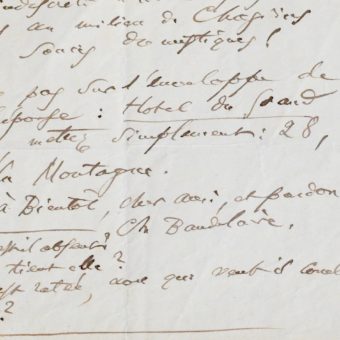 au milieu de Chagrins
Soucis domestiques!
pas sur l'enveloppe de
réponse : Hotel du Grand
mettez simplement : 28,
la Montagne.
à Bientôt, cher ami, et pardon
Ch Baudelaire.
est-il absent?
tient-elle ?
est ratée, que veut-il
?